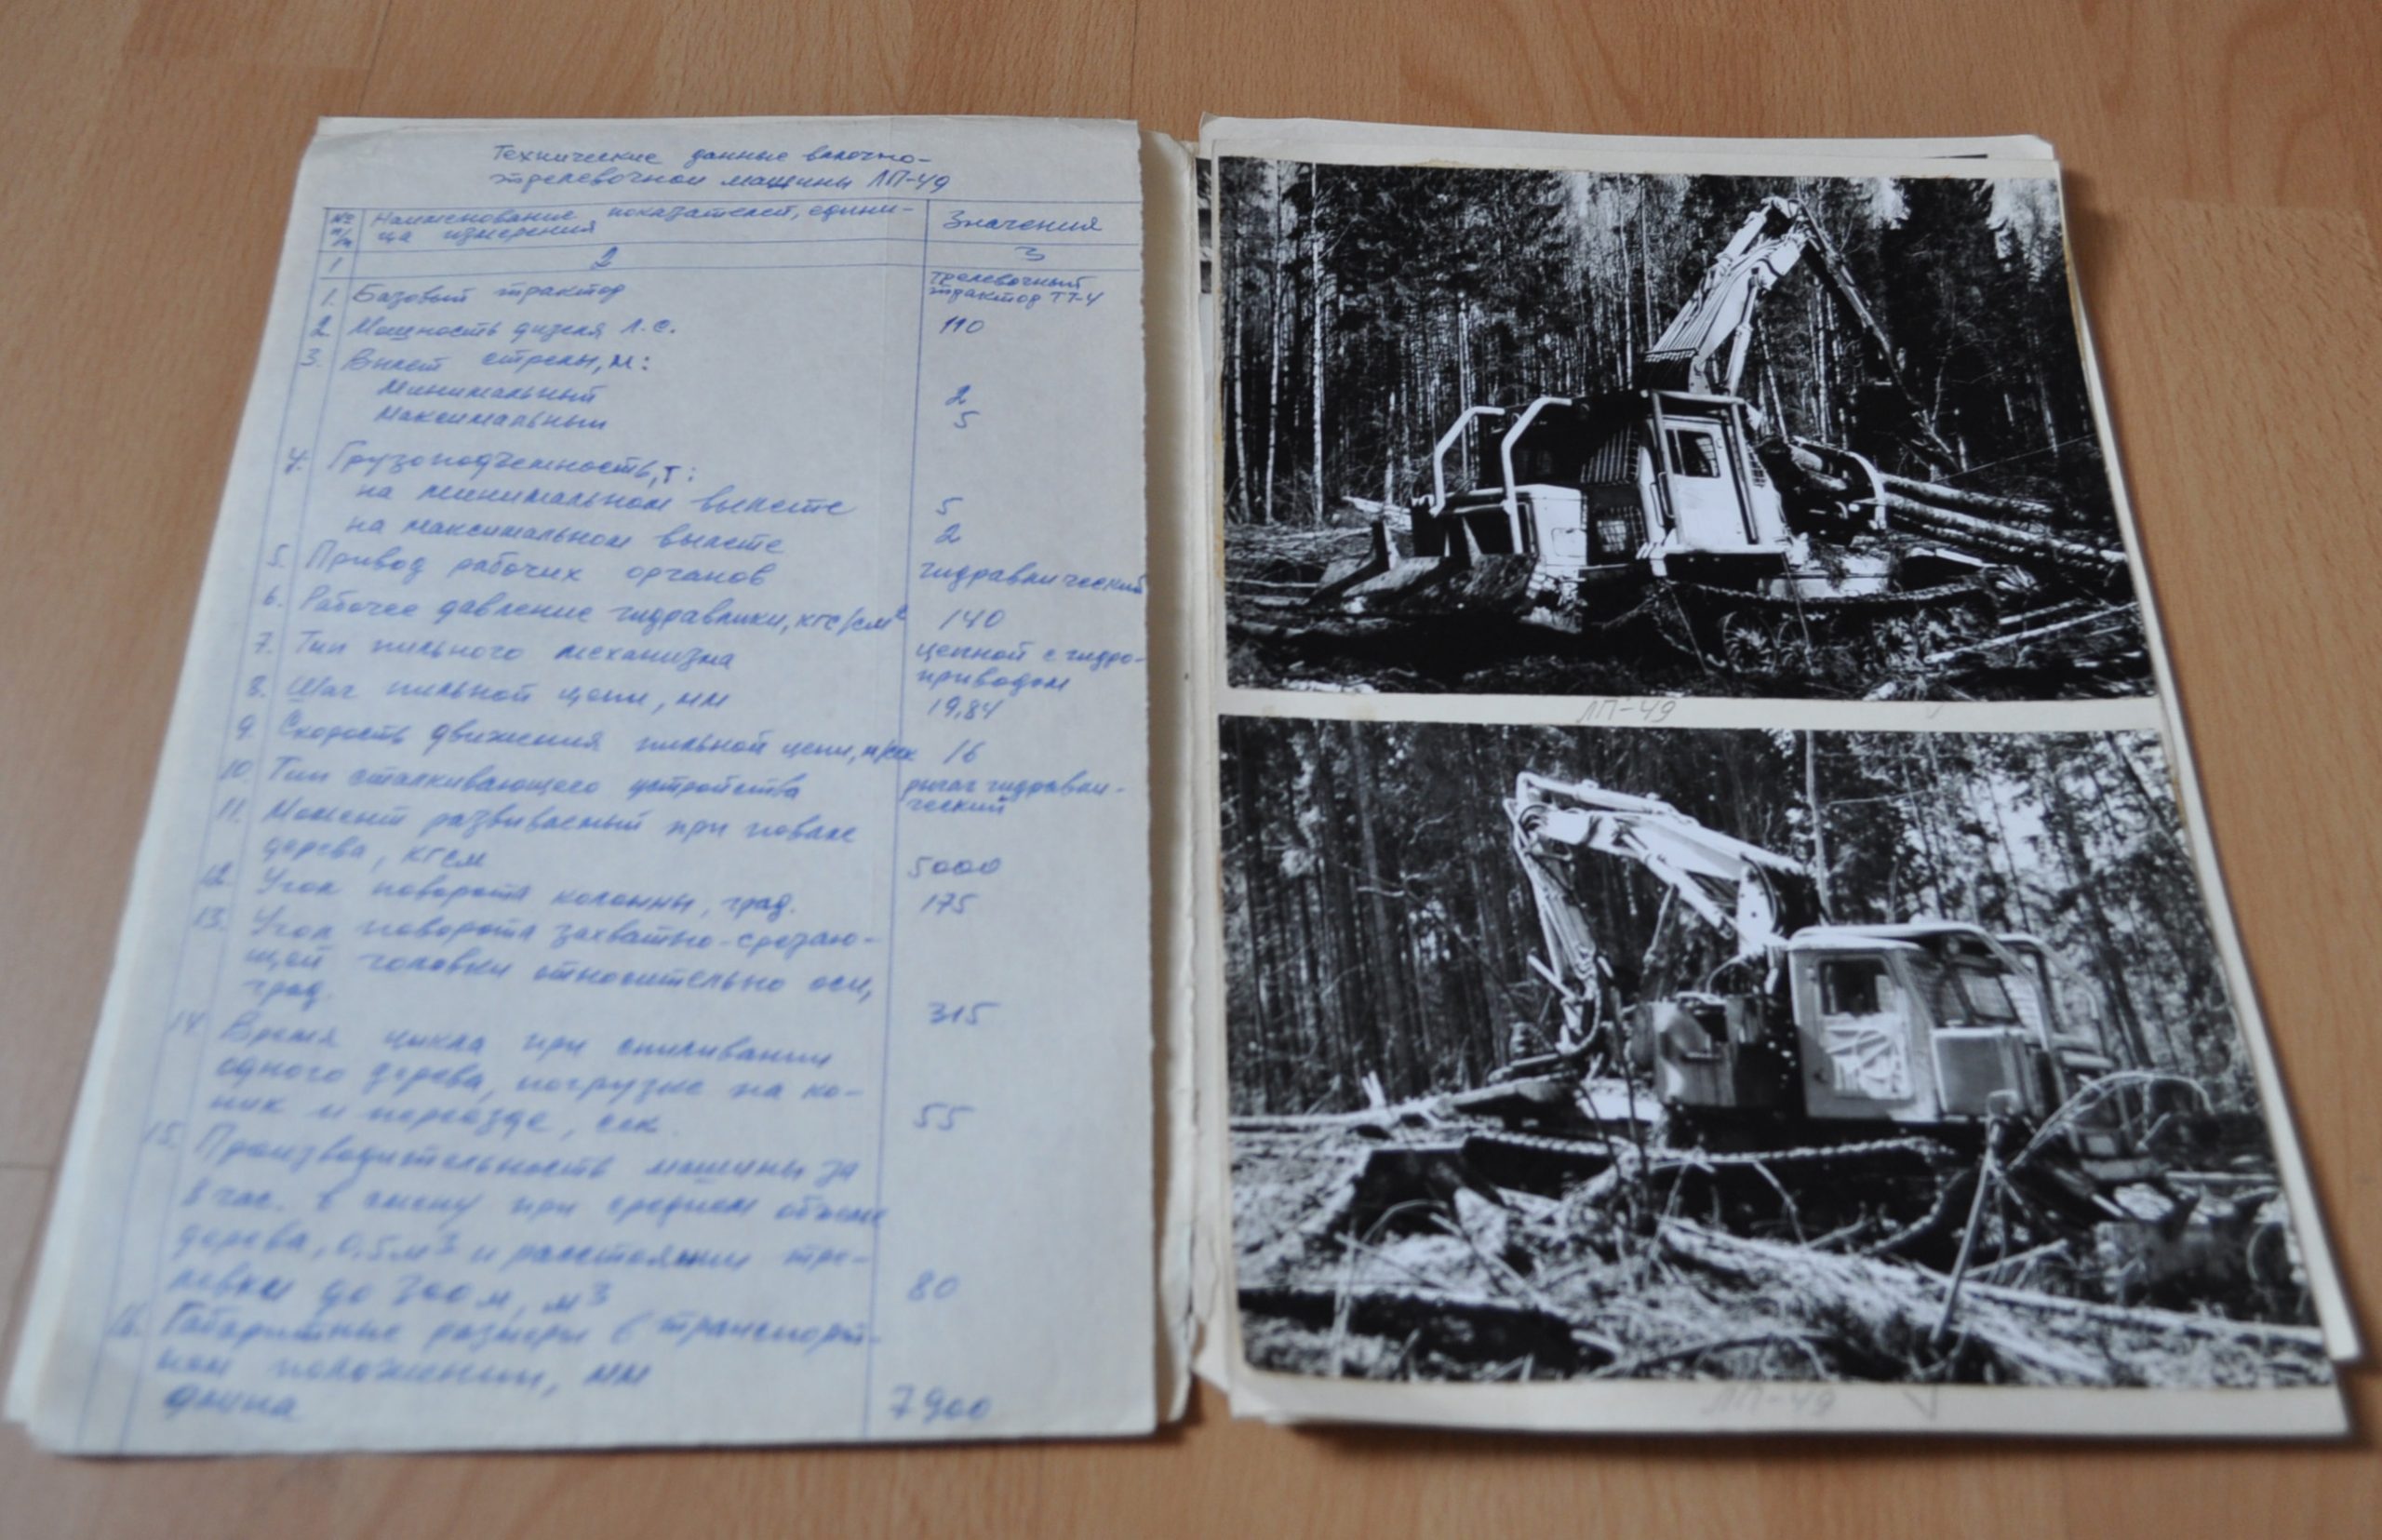 Технические данные валочно-
трелевочной машины ЛП-49
№ п/п
Наименование показателей, едини-
ца измерения
Значения
1
2
3
1. Базовый трактор
трелевочный
трактор ТТ-4
2. Мощность дизеля л.с.
110
3. Вылет стрелы, м:
минимальный
2
максимальный
5
4. Грузоподъемность, т:
на минимальном вылете
5
на максимальном вылете
2
5. Привод рабочих органов
гидравлический
6. Рабочее давление гидравлики, кгс/см²
140
7. Тип пильного механизма
цепной с гидро-
приводом
8. Шаг пильной цепи, мм
19,84
9. Скорость движения пильной цепи, м/сек
16
10. Тип сталкивающего устройства
рычаг гидравли-
ческий
11. Момент развиваемый при повале
дерева, кгсм
5000
12. Угол поворота колонны, град.
175
13. Угол поворота захватно-срезаю-
щей головки относительно оси,
град.
315
14. Время цикла при спиливании
одного дерева, погрузке на ко-
ник и переезде, сек.
55
15. Производительность машины за
8 час. в смену при среднем объеме
дерева, 0,5 м³ и расстоянии тре-
левки до 300 м, м³
80
16. Габаритные размеры в транспорт-
ном положении, мм
длина
7900
ЛП-49
ЛП-49